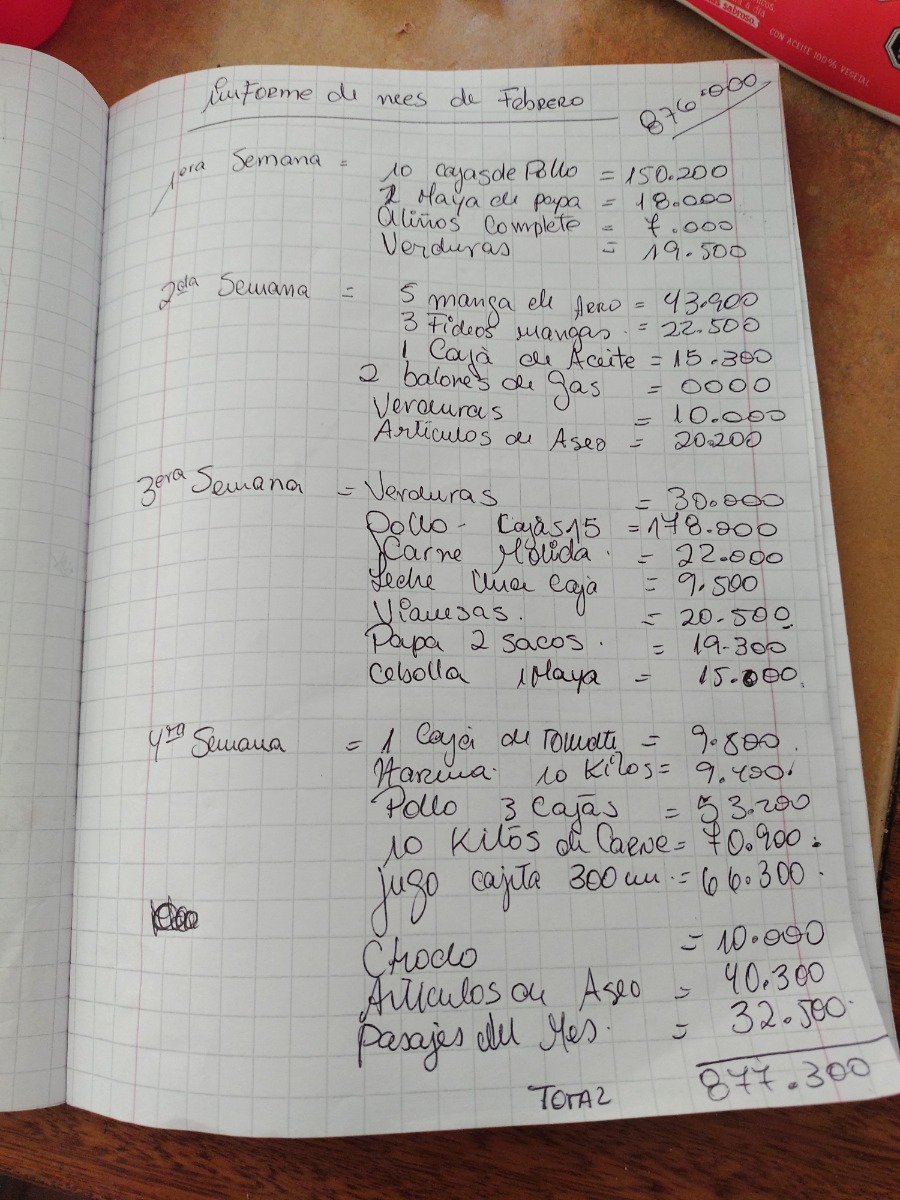 sabrosa
CON ACEITE 100% VEGETAL
Imforme de mees de Febrero
876.000
1era Semana = 10 cajas de Pollo = 150.200
2 Maya de papa = 18.000
Aliños Complete = 7.000
Verduras = 19.500
2da Semana = 5 manga de Arro = 43.900
3 Fideos mangas = 22.500
1 Caja de Aceite = 15.300
2 balones de gas = 0000
Verduras = 10.000
Artículos de Aseo = 20.200
3era Semana = Verduras = 30.000
Pollo - Cajas 15 = 178.000
Carne Molida = 22.000
Leche Una Caja = 9.500
Vianesas = 20.500
Papa 2 sacos = 19.300
Cebolla 1 Maya = 15.000
4ra Semana = 1 Caja de tomate = 9.800
Harina 10 Kilos = 9.400
Pollo 3 Cajas = 53.200
10 Kilos de Carne = 70.900
jugo cajita 300 un = 66.300
Choclo = 10.000
Artículos de Aseo = 40.300
Pasajes del Mes = 32.500
TOTAL 877.300